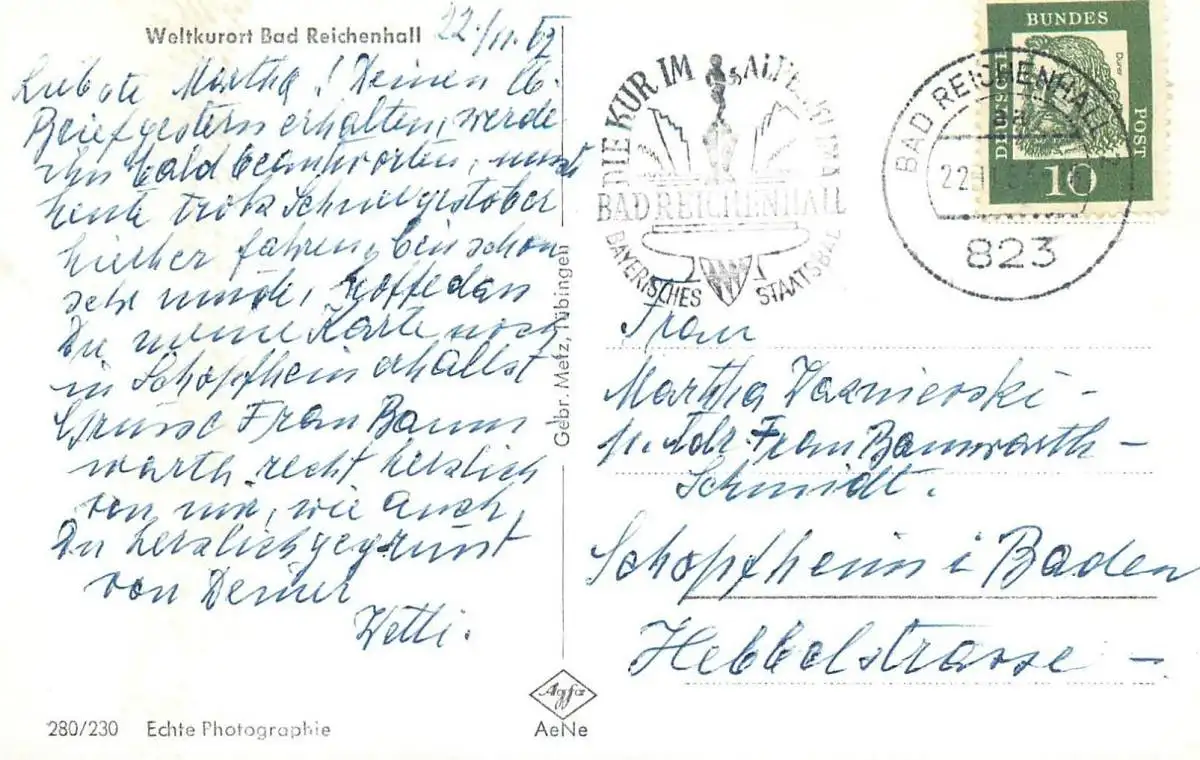 Weltkurort Bad Reichenhall
22./11. 62
Liebste Martha! Deinen lb.
Brief gestern erhalten, werde
ihn bald beantworten, muste
heute trotz Schneegestöber
hierher fahren, bin schon
sehr müde, hoffe dass
Du meine Karte noch
in Schopfheim erhällst
Grüsse Frau Baum
warth recht herzlich
von mir, wie auch
Du herzlich gegrüsst
von Deiner
Wetti.
280/230 Echte Photographie
Gebr. Metz, Tübingen
Agfa
AeNe
DIE KUR IM ALPENKLIMA
BAD REICHENHALL
BAYERISCHES STAATSBAD
BAD REICHENHALL
823
DEUTSCHE BUNDES POST
Dürer
10
Frau
Martha
p. Adr. Frau Baumwarth -
Schmidt.
Schopfheim i Baden
Hebbelstrasse -